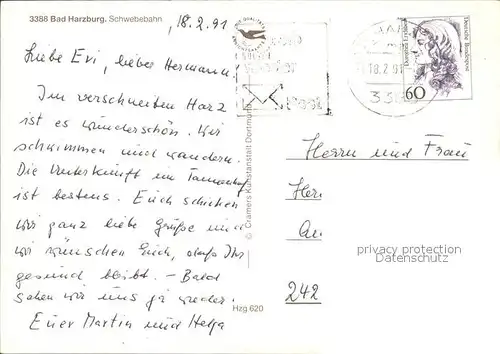 3388 Bad Harzburg. Schwebebahn
18.2.91
Liebe Evi, lieber Hermann!
Im verschneiten Harz
ist es wunderschön. Wir
schwimmen und wandern.
Die Unterkunft im Tannenhof
ist bestens. Euch schicken
wir ganz liebe Grüße und
wir wünschen Euch, daß Ihr
gesund bleibt. – Bald
sehen wir uns ja wieder.
Euer Martin und Helga
Hzg 620
© Cramers Kunstanstalt Dortmund
Post
18.2.91
60
Deutsche Bundespost
Herrn und Frau
Her
An
242
privacy protection
Datenschutz